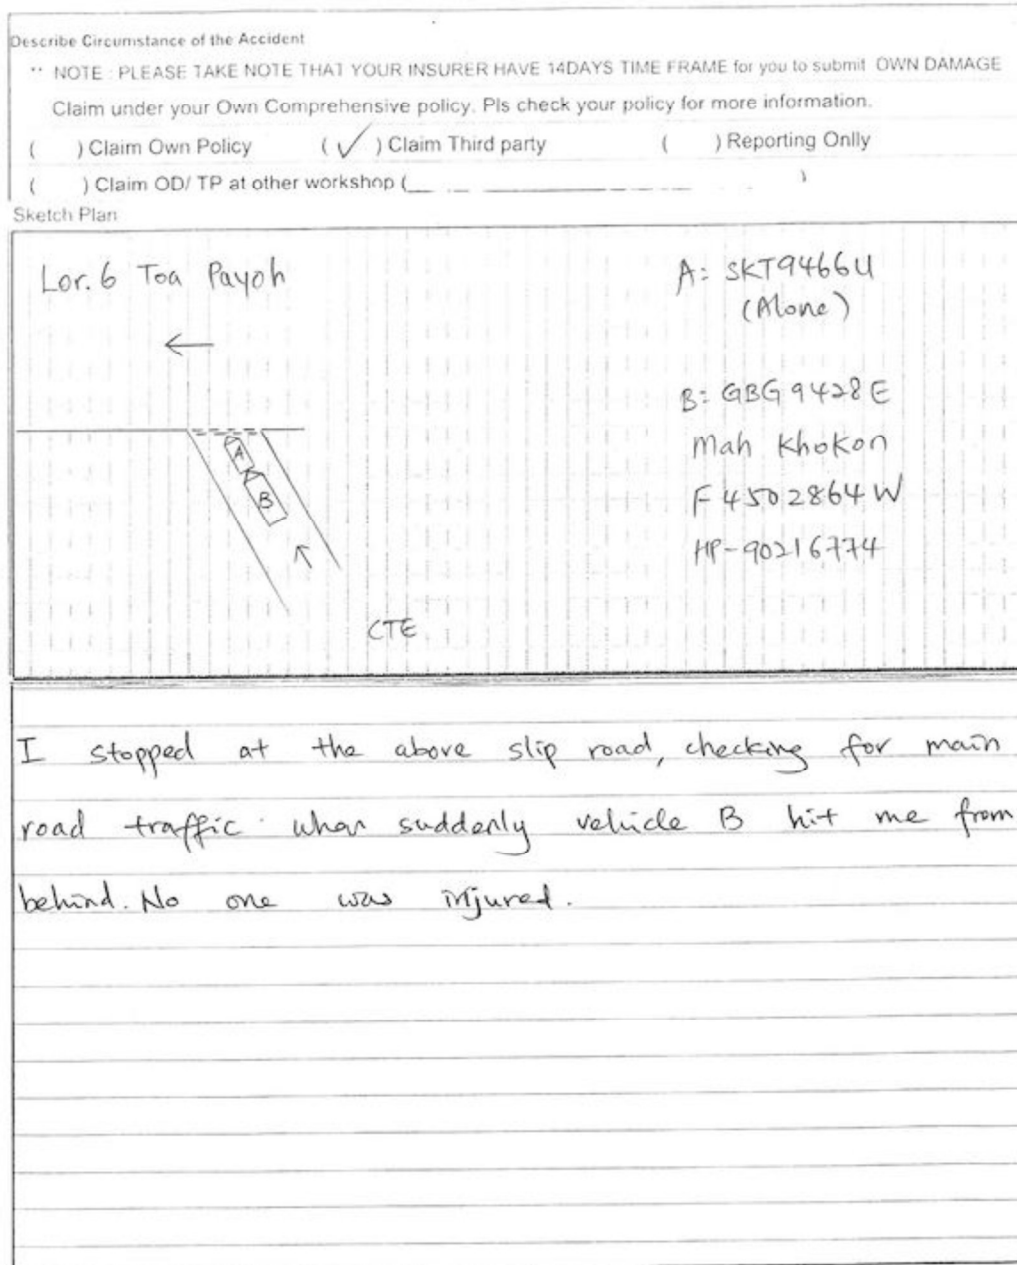 Describe Circumstance of the Accident
** NOTE : PLEASE TAKE NOTE THAT YOUR INSURER HAVE 14DAYS TIME FRAME for you to submit OWN DAMAGE
Claim under your Own Comprehensive policy. Pls check your policy for more information.
( ) Claim Own Policy (✓) Claim Third party ( ) Reporting Onlly
( ) Claim OD/ TP at other workshop (____________________)
Sketch Plan
Lor. 6 Toa Payoh
←
A: SKT9466U
(Alone)
B: GBG9428E
Mah Khokon
F4502864W
HP-90216774
A
B
CTE
I stopped at the above slip road, checking for main
road traffic when suddenly vehicle B hit me from
behind. No one was injured.